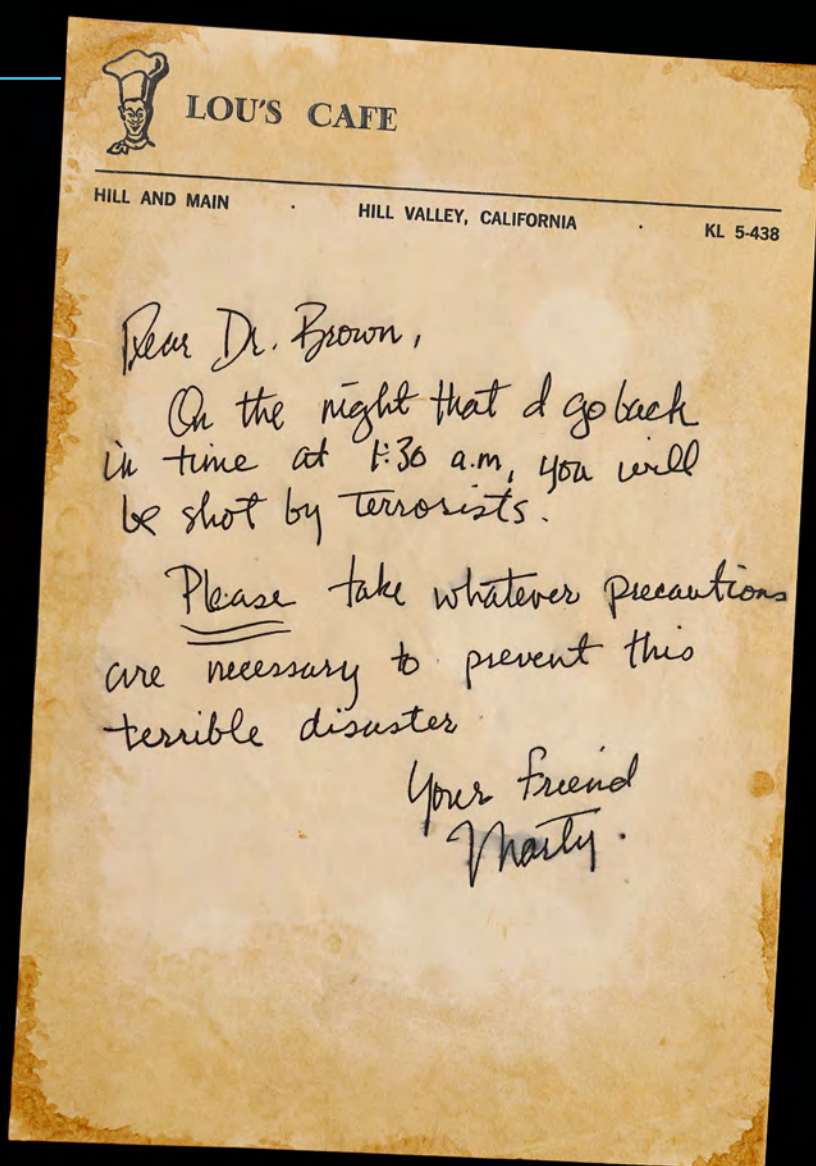 LOU'S CAFE
HILL AND MAIN · HILL VALLEY, CALIFORNIA · KL 5-438
Dear Dr. Brown,
On the night that I go back
in time at 1:30 a.m, you will
be shot by terrorists.
Please take whatever precautions
are necessary to prevent this
terrible disaster.
Your friend
Marty.